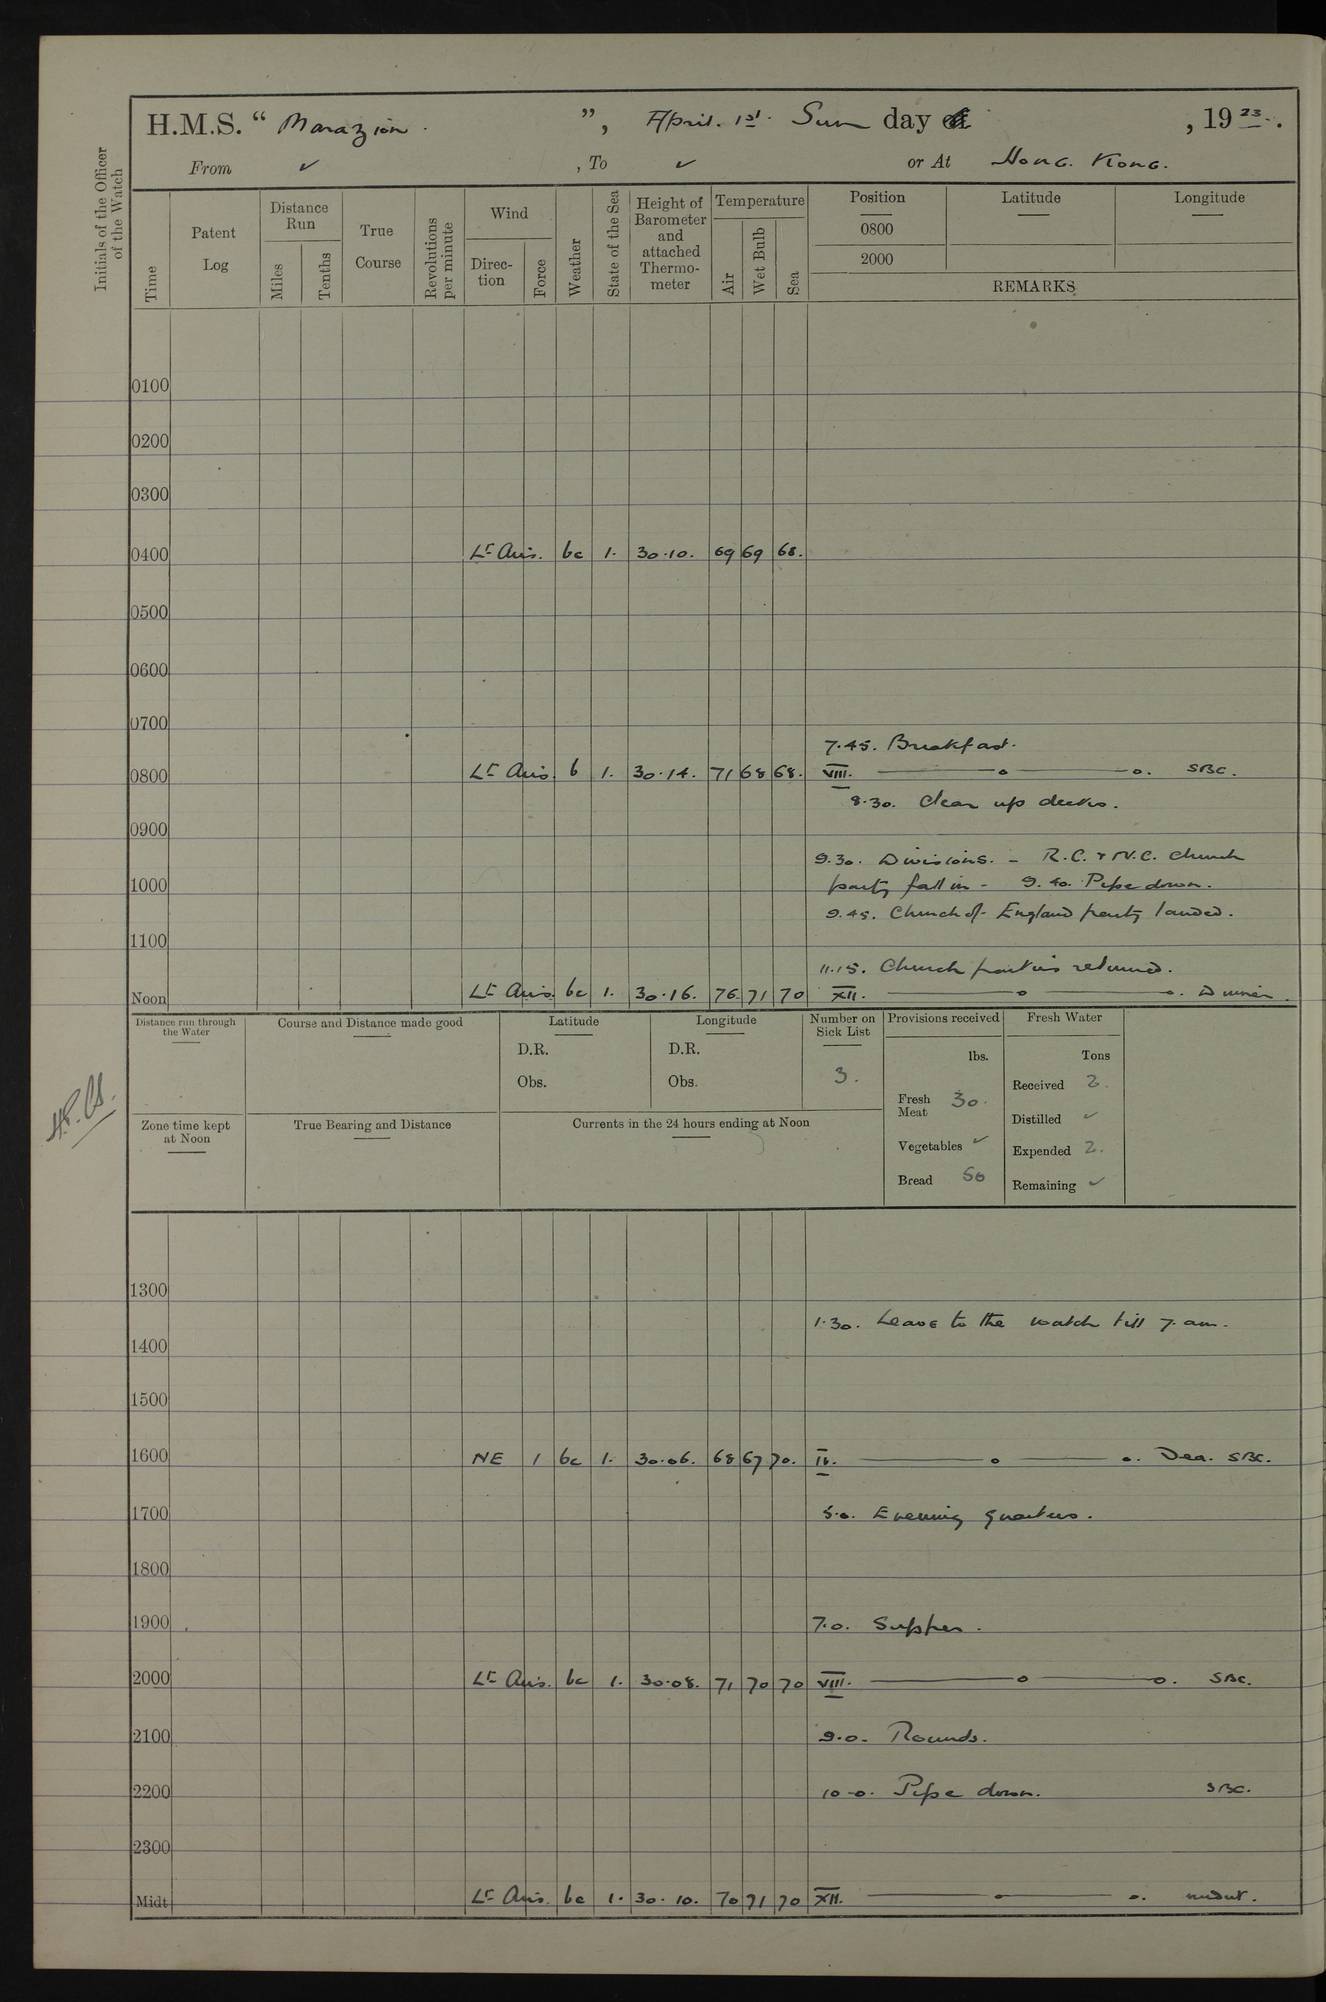 H.M.S. “ Marazion. ”, April. 1st. Sun day of , 19 23.
From ✓ , To ✓ or At Hong. Kong.
Initials of the Officer of the Watch
Time
Patent Log
Distance Run
Miles
Tenths
True Course
Revolutions per minute
Wind
Direc-tion
Force
Weather
State of the Sea
Height of Barometer and attached Thermo-meter
Temperature
Air
Wet Bulb
Sea
Position
0800
2000
Latitude
Longitude
REMARKS
0100
0200
0300
0400 Lt Airs. bc 1. 30.10. 69 69 68.
0500
0600
0700
7.45. Breakfast.
0800 Lt Airs. b 1. 30.14. 71 68 68. VIII. SBC.
8.30. Clear up decks.
0900
9.30. Divisions. – R.C. & N.C. Church
1000 party fall in – 9.40. Pipe down.
9.45. Church of England party landed.
1100
11.15. Church parties returned.
Noon Lt Airs. bc 1. 30.16. 76. 71 70 XII. Dinner.
Distance run through the Water
Course and Distance made good
Latitude
D.R.
Obs.
Longitude
D.R.
Obs.
Number on Sick List
3.
Provisions received
lbs.
Fresh Meat 30.
Vegetables ✓
Bread 50
Fresh Water
Tons
Received 2.
Distilled ✓
Expended 2.
Remaining ✓
Zone time kept at Noon
True Bearing and Distance
Currents in the 24 hours ending at Noon
1300
1.30. Leave to the watch till 7. am.
1400
1500
1600 NE 1 bc 1. 30.06. 68 67 70. IV. Tea. SBC.
1700 5.0. Evening quarters.
1800
1900 7.0. Supper.
2000 Lt Airs. bc 1. 30.08. 71 70 70 VIII. SBC.
2100 9.0. Rounds.
2200 10.0. Pipe down. SBC.
2300
Midt Lt Airs. bc 1. 30.10. 70 71 70 XII.